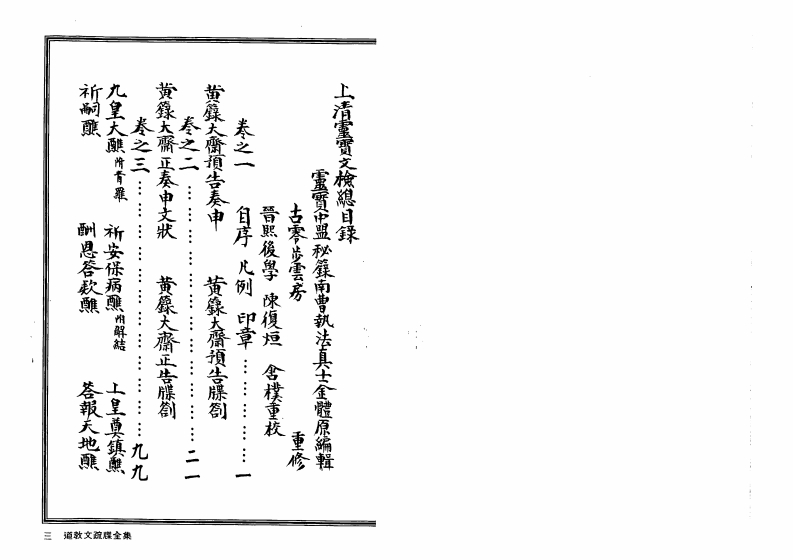 上清靈寶文檢總目錄
靈寶中盟秘籙南曹執法真士金體原編輯
古零步雲房 重修
晉熙後學 陳復烜 含樸重校
自序 凡例 印章……………一
卷之一
黃籙大齋預告奏申 黃籙大齋預告牒劄
卷之二……………二一
黃籙大齋正奏申文狀 黃籙大齋正告牒劄
卷之三……………九九
九皇大醮附青羅 祈安保病醮附解結 上皇奠鎮醮
祈嗣醮 酬恩答款醮 答報天地醮
三 道教文疏牒全集